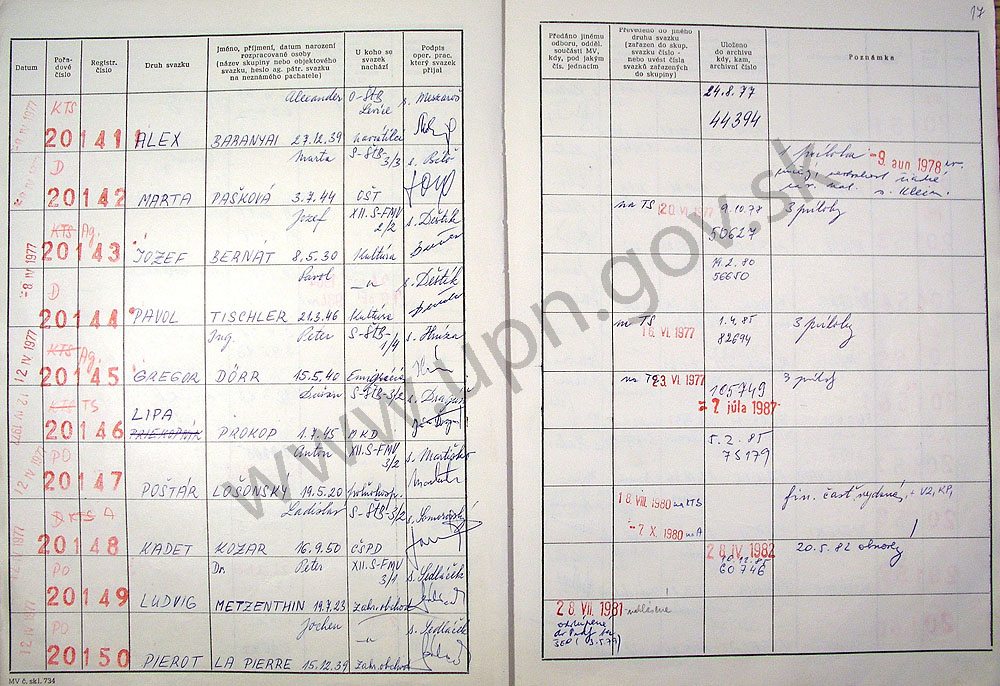 17
Datum
Pořadové číslo
Registr. číslo
Druh svazku
Jméno, příjmení, datum narození rozpracované osoby
(název skupiny nebo objektového svazku, heslo ag. pátr. svazku
na neznámého pachatele)
U koho se svazek nachází
Podpis oper. prac. který svazek přijal
Předáno jinému odboru, odděl. součásti MV, kdy, pod jakým čís. jednacím
Převedeno do jiného druhu svazku
(zařazen do skup. svazku číslo - nebo uvést čísla svazků zařazených do skupiny)
Uloženo do archivu kdy, kam, archivní číslo
Poznámka
KTS Alexander O-ŠtB Levice s.
20141 ALEX BARANYAI 27.12.39
24.8.77
44394
D Marta S-ŠtB 3/3 s.
20142 MARTA PAŠKOVÁ 3.7.44 OŠT
1 príloha 9. aug 1978
KTS Ag. Jozef XII.S-FMV 2/2 s. Deštík
20143 JOZEF BERNÁT 8.5.30 Kultúra
na TS 20. VI. 1977 9.10.78 3 prílohy
50627
8. IV 1977
D Pavol -"- s. Deštík
20144 PAVOL TISCHLER 21.3.46 Kultúra
19.2.80
56650
12 IV 1977
KTS Ag. Ing. Peter S-ŠtB-1/4 s.
20145 GREGOR DÖRR 15.5.40 Emigrácia
na TS 16. VI. 1977 1.4.85 3 prílohy
82694
12 IV 1977
KTS TS S-ŠtB-3/2 s.
LIPA
20146 PRIEKOPNÍK PROKOP 1.7.45
na TS 23. VI. 1977 105749 3 príloh
= 7. júla 1987
12 IV 1977
PO Anton XII.S-FMV 3/2 s. Martiško
20147 POŠTÁR LOŠONSKÝ 19.5.20
5.2.85
75179
D KTS A Ladislav S-ŠtB-3/2 s.
20148 KADET KOZAR 16.9.50 ČSPD
18. VIII. 1980 na KTS fin. časť vydaná, + V2, KP,
- 7. X. 1980 na A
12 IV 1977
PO Dr. Peter XII.S-FMV 3/1 s. Sedláček
20149 LUDVIG METZENTHIN 19.7.23 zahr. obchod
28 IV. 1982 20.5.82 obnovy
10.12.85
60746
12 IV 1977
PO Jochen -"- s. Sedláček
20150 PIEROT LA PIERRE 15.12.39 zahr. obchod
28. VII. 1981
MV č. skl. 734
www.upn.gov.sk